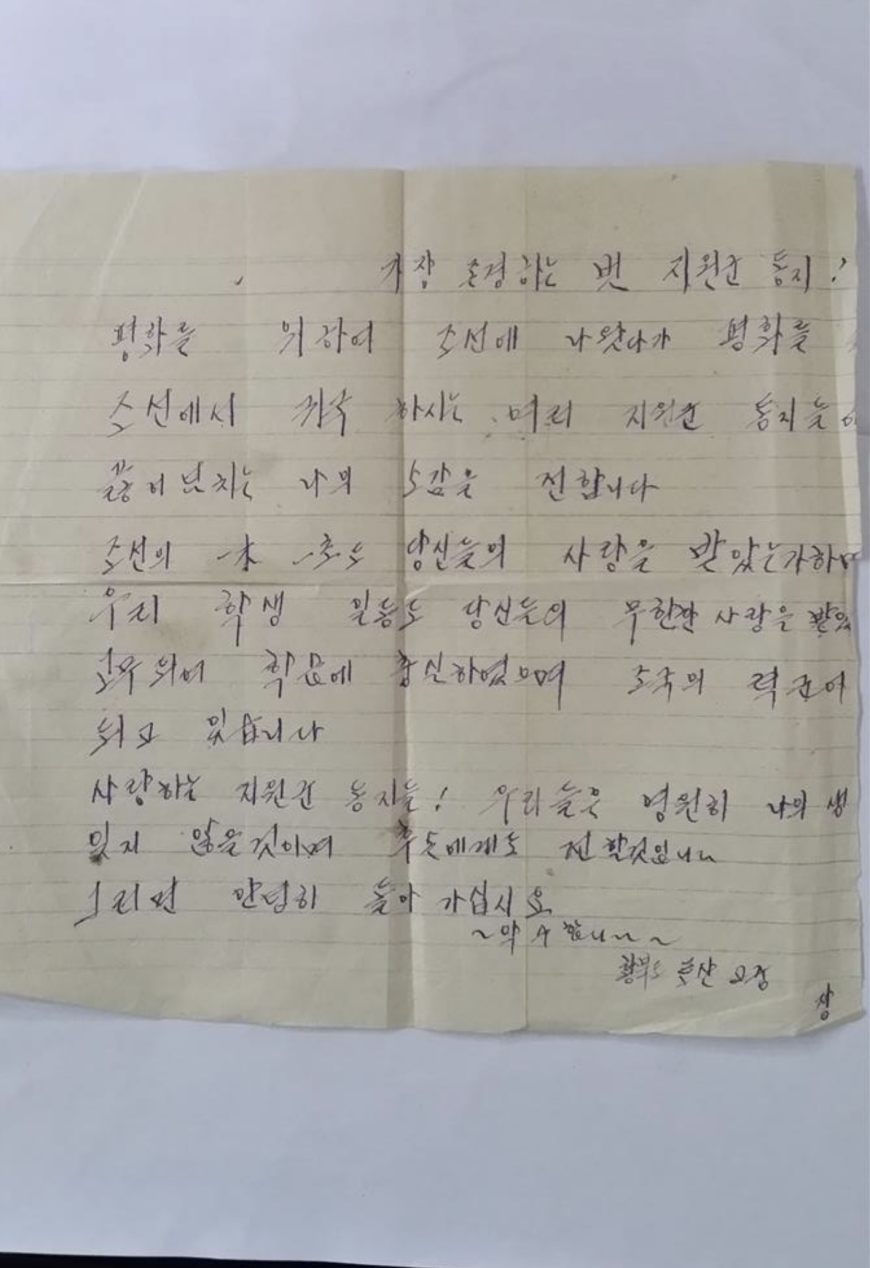 가장 존경하는 벗 지원군 동지!
평화를 위하여 조선에 나왓다가 평화를
조선에서 귀국 하시는 여러 지원군 동지들
끓어 넘치는 나의 소감을 전합니다
조선의 一木 一초도 당신들의 사랑을 받았는가하며
우리 학생 일동도 당신들의 무한한 사랑을 받
학교에 충실하였으며 조국의 력군이
되고 있습니다
사랑하는 지원군 동지들! 우리들은 영원히 나의 생
잊지 않을것이며 후손에게도 전 할것입니다
그러면 안녕히 돌아 가십시요